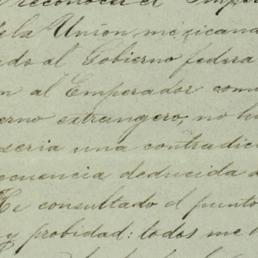 reconocer el Imper
la Union mexicana
do al Gobierno federa
n al Emperador com
erno extrangero, no h
seria una contradic
ecuencia deducida
He consultado el punto
y probidad: todos me